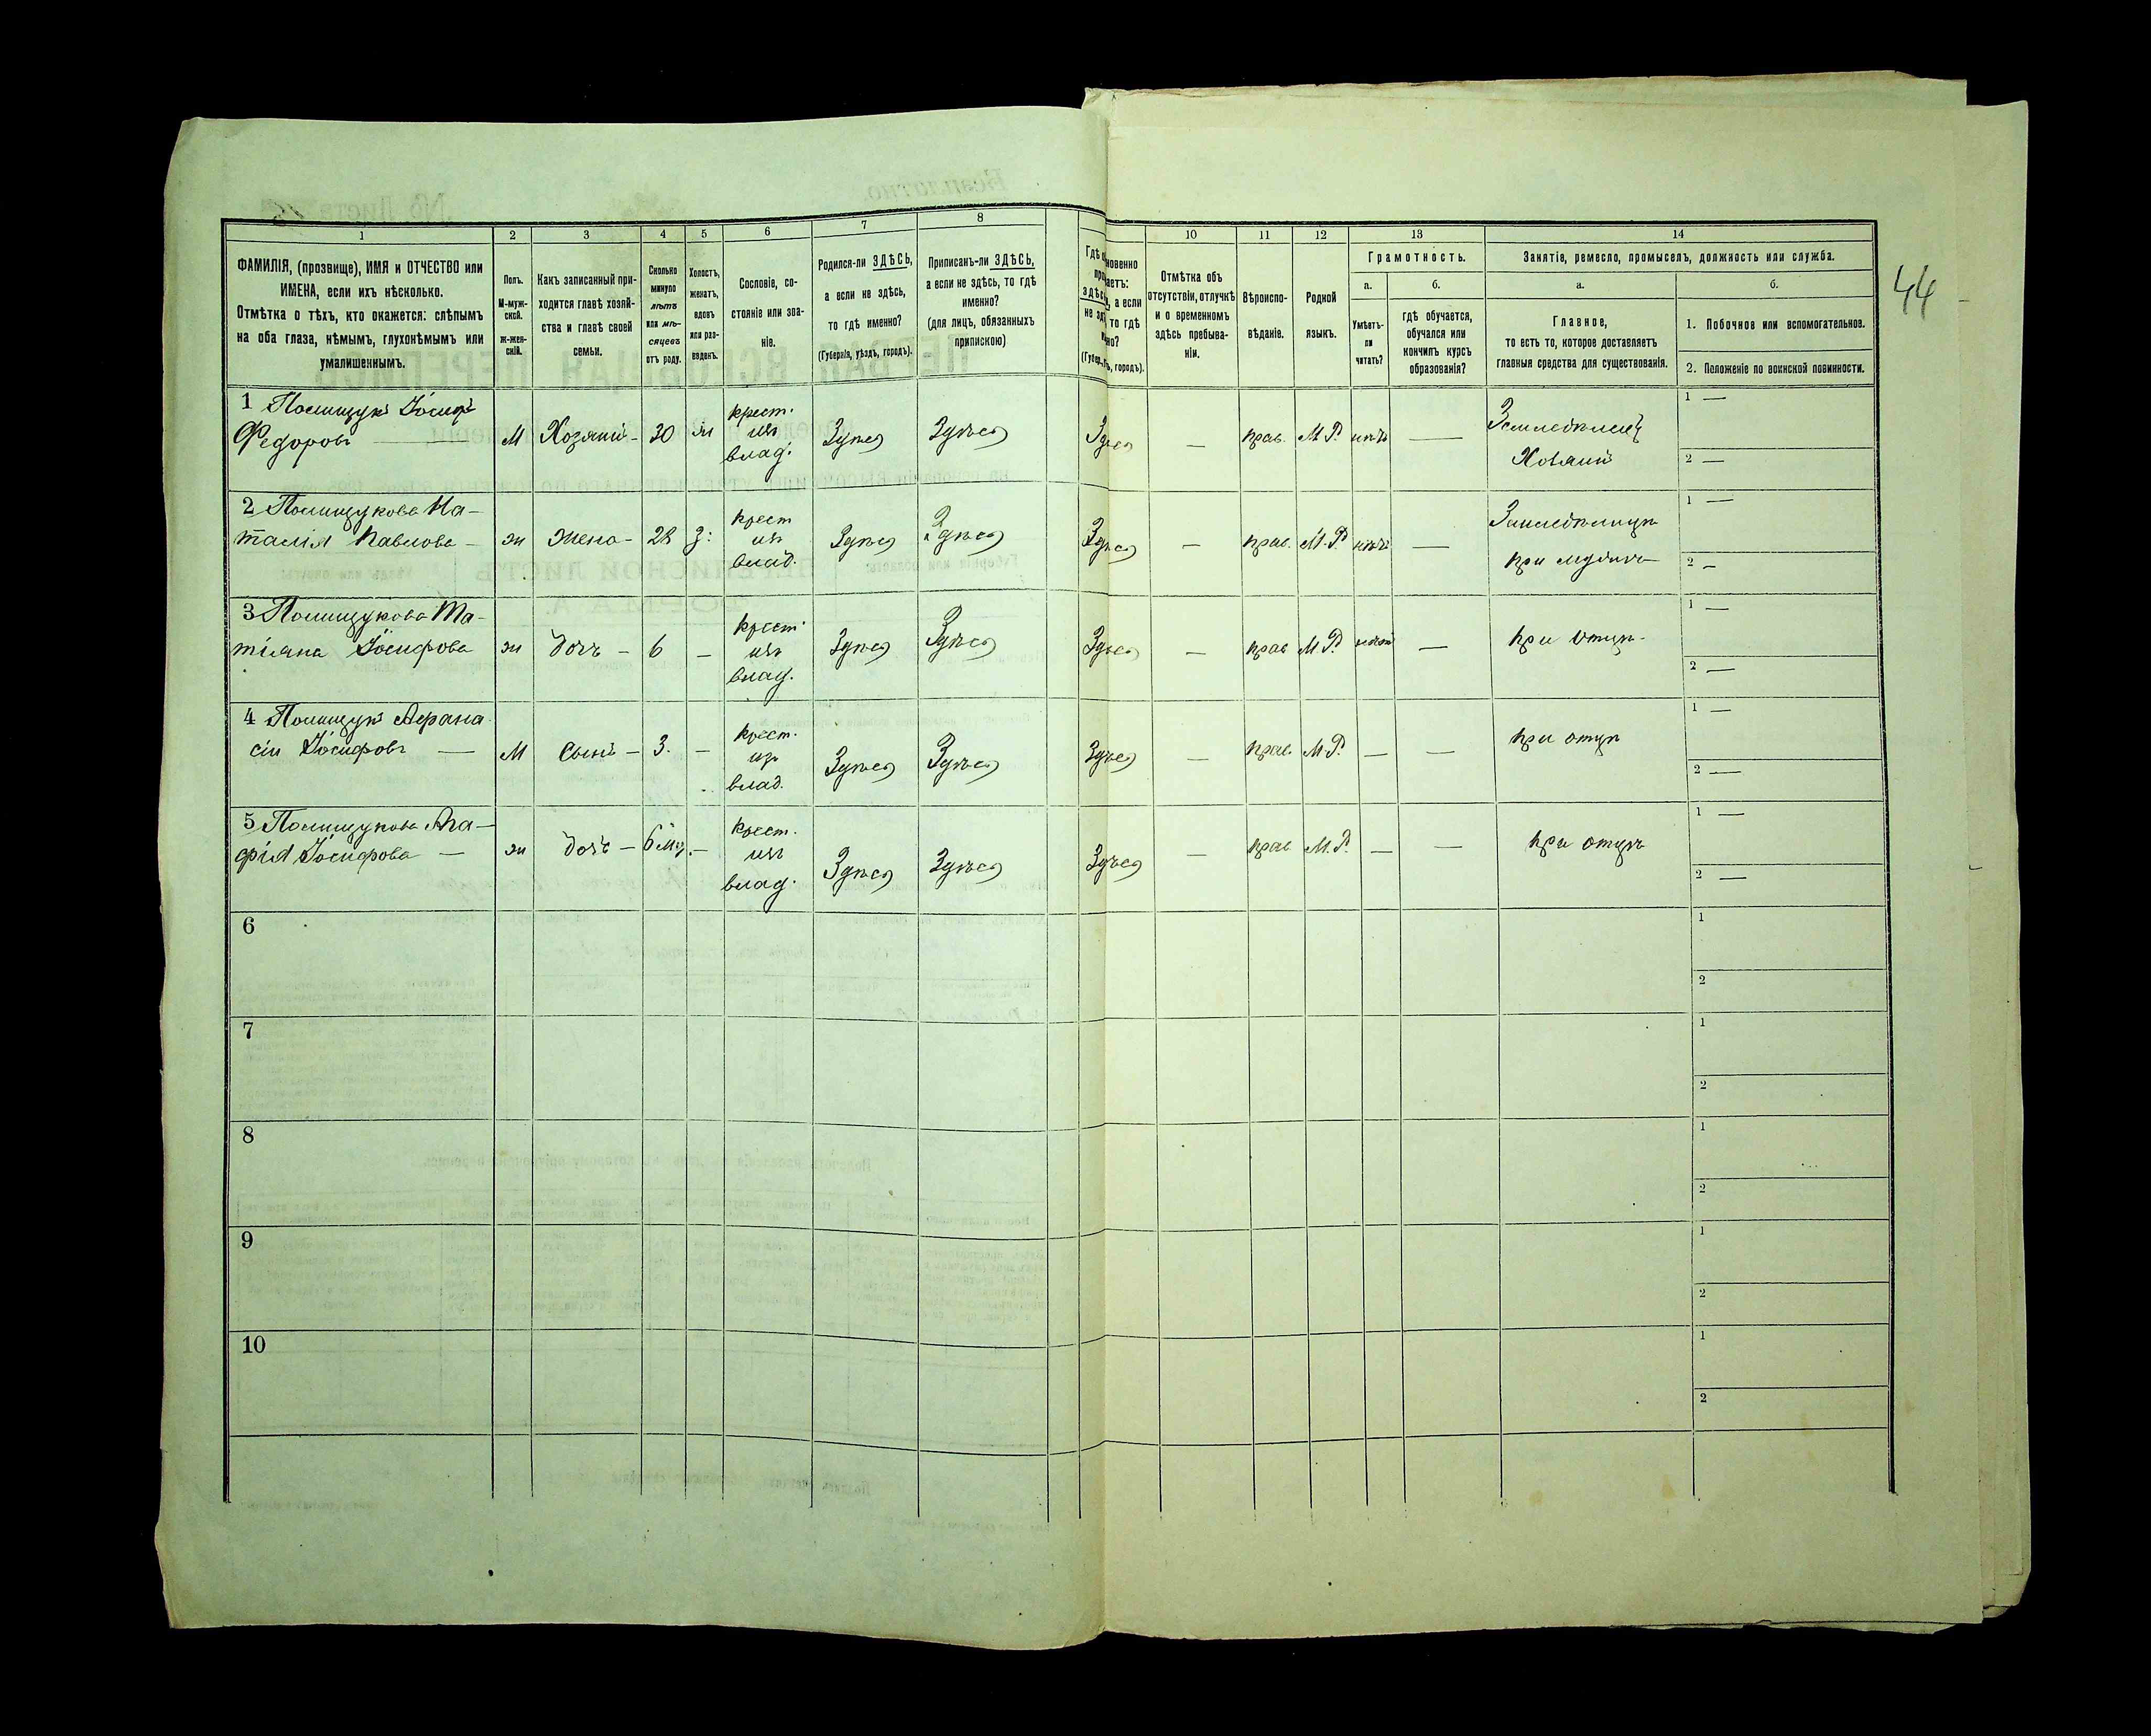 44
1 2 3 4 5 6 7 8 10 11 12 13 14
ФАМИЛІЯ, (прозвище), ИМЯ и ОТЧЕСТВО или
ИМЕНА, если ихъ нѣсколько.
Отмѣтка о тѣхъ, кто окажется: слѣпымъ
на оба глаза, нѣмымъ, глухонѣмымъ или
умалишеннымъ.
Полъ.
М-муж-
ской.
ж-жен-
скій.
Какъ записанный при-
ходится главѣ хозяй-
ства и главѣ своей
семьи.
Сколько
минуло
лѣтъ
или мѣ-
сяцевъ
отъ роду.
Холостъ,
женатъ,
вдовъ
или раз-
веденъ.
Сословіе, со-
стояніе или зва-
ніе.
Родился-ли ЗДѢСЬ,
а если не здѣсь,
то гдѣ именно?
(Губернія, уѣздъ, городъ).
Приписанъ-ли ЗДѢСЬ,
а если не здѣсь, то гдѣ
именно?
(для лицъ, обязанныхъ
припискою)
Гдѣ
новенно
аетъ:
а если
то гдѣ
но?
городъ).
Отмѣтка объ
отсутствіи, отлучкѣ
и о временномъ
здѣсь пребыва-
ніи.
Вѣроиспо-
вѣданіе.
Родной
языкъ.
Грамотность.
а.
Умѣетъ-
ли
читать?
б.
гдѣ обучается,
обучался или
кончилъ курсъ
образованія?
Занятіе, ремесло, промыселъ, должность или служба.
а.
Главное,
то есть то, которое доставляетъ
главныя средства для существованія.
б.
1. Побочное или вспомогательное.
2. Положеніе по воинской повинности.
1 Полищукъ Іосифъ
Федоровъ — М Хозяинъ - 30 ж крест. изъ влад. Здѣсь Здѣсь Здѣсь — прав. М.Р. нѣтъ — Земледѣлецъ
Хозяинъ
1 —
2 —
2 Полищукова На-
талія Павлова - ж жена - 28 з: крест изъ влад. Здѣсь Здѣсь Здѣсь — прав. М.Р. нѣтъ — при мужѣ
1 —
2 —
3 Полищукова Та-
тіяна Іосифова ж дочь - 6 — крест изъ влад. Здѣсь Здѣсь Здѣсь — прав М.Р. — при отцѣ
1 —
2 —
4 Полищукъ Афана
сій Іосифовъ — М Сынъ - 3. — крест. изъ влад. Здѣсь Здѣсь Здѣсь — прав. М.Р. — — при отцѣ
1 —
2 —
5 Полищукова Ага-
фія Іосифова — ж дочь - 6 мѣс. — крест. изъ влад. Здѣсь Здѣсь Здѣсь — прав М.Р. — — при отцѣ
1 —
2 —
6
1
2
7
1
2
8
1
2
9
1
2
10
1
2